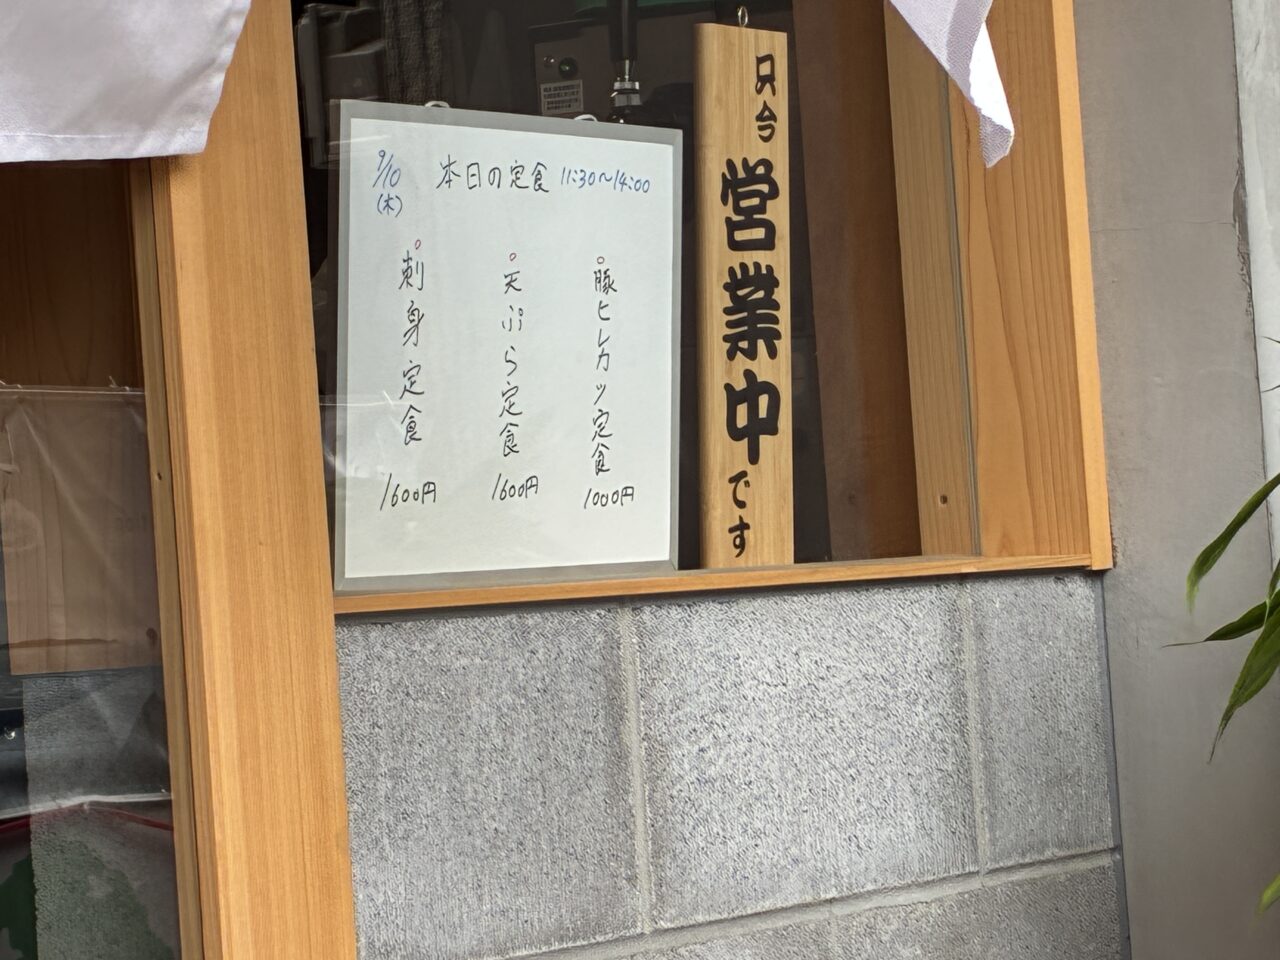 9/10
(木)
本日の定食 11:30～14:00
豚ヒレカツ定食
1000円
天ぷら定食
1600円
刺身定食
1600円
只今
営業中
です